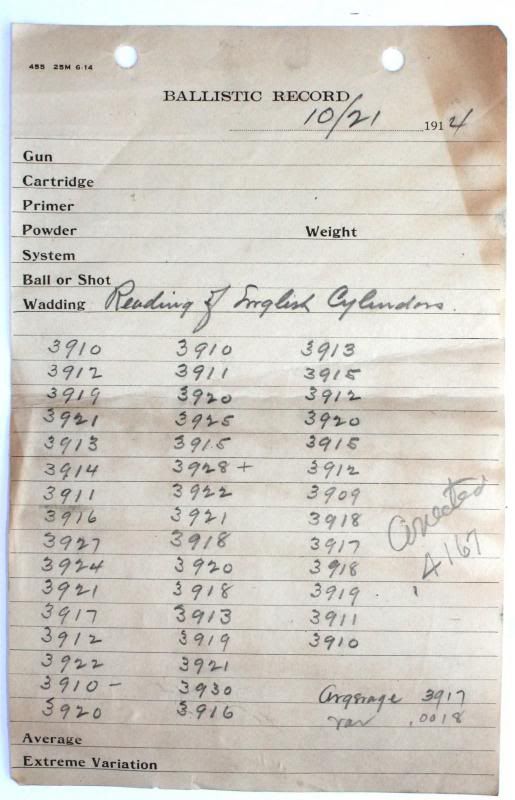 455 25M 6-14
BALLISTIC RECORD
10/21 1914
Gun
Cartridge
Primer
Powder Weight
System
Ball or Shot
Wadding Reading of English Cylindors.
3910 3910 3913
3912 3911 3915
3919 3920 3912
3921 3925 3920
3913 3915 3915
3914 3928+ 3912
3911 3922 3909
3916 3921 3918
3927 3918 3917
3924 3920 3918
3921 3918 3919
3917 3913 3911
3912 3919 3910
3922 3921
3910- 3930
3920 3916
Corrected
4167
Avgerage 3917
var .0018
Average
Extreme Variation